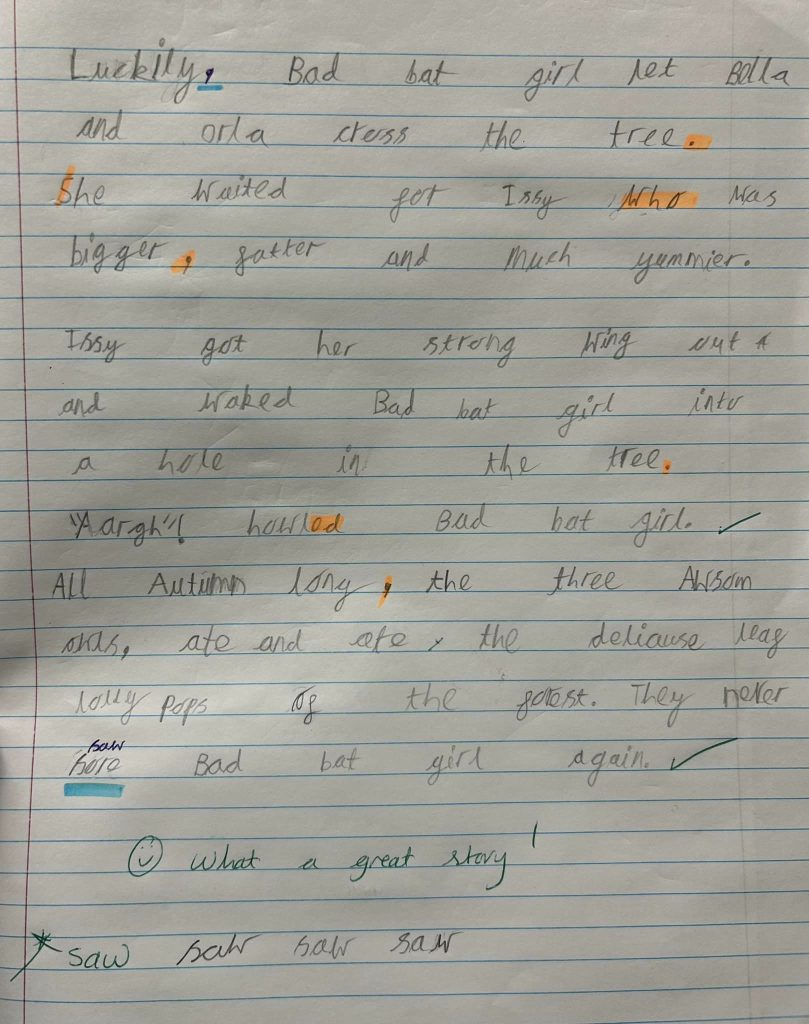 Luckily, Bad bat girl let Bella
and orla cross the tree.
She waited for Issy Who was
bigger, fatter and much yummier.
Issy got her strong Wing out
and Waked Bad bat girl into
a hole in the tree.
"Aargh"! howlod Bad bat girl.
All Autumn long, the three Awsom
owls, ate and ate, the deliause leaf
lolly pops of the forest. They never
saw
sore Bad bat girl again.
What a great story!
saw saw saw saw